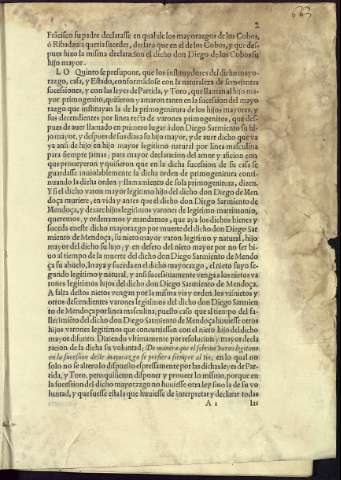 2
Fräcisco su padre declarasse en qual de los mayorazgos de los Cobos,
ò Ribadauia queria suceder, declarò que en el de los Cobos, y que des-
pues hizo la misma declaracion el dicho don Diego de los Cobos su
hijo mayor.
LO Quinto se presupone, que los instituydores del dicho mayo-
razgo, casa, y Estado, conformãdose con la naturaleza de semejantes
sucessiones, y con las leyes de Partida, y Toro, que llaman al hijo ma-
yor primogenito, quisieron y amaron tanto en la sucession del mayo
razgo que instituyan la de la primogenitura de los hijos mayores, y
sus decendientes por linea recta de varones primogenitos, que des-
pues de auer llamado en primero lugar à don Diego Sarmiento su hi-
jo mayor, y despues de sus dias a su hijo mayor, y de auer dicho que va
ya ansi de hijo en hijo mayor legitimo natural por linea masculina
para siempre jamas; para mayor declaracion del amor y aficion con
que proueyeron y quisieron que en la dicha sucession de su casa se
guardasse inuiolablemente la dicha orden de primogenitura conti-
nuando la dicha orden y llamamiento de sola primogenitura, dizen.
Y si el dicho varon mayor legitimo hijo del dicho don Diego de Men
doça muriere, en vida y antes que el dicho don Diego Sarmiento de
Mendoça, y dexare hijos legitimos varones de legitimo matrimonio,
queremos, y ordenamos y mandamos, que aya los dichos bienes y
suceda en este dicho mayorazgo por muerte del dicho don Diego Sar
miento de Mendoça, su nieto mayor varon legitimo y natural, hijo
mayor del dicho su hijo; y en defeto del nieto mayor por no ser bi-
uo al tiempo de la muerte del dicho don Diego Sarmiento de Mendo
ça su abuelo, lo aya y suceda en el dicho mayorazgo, el nieto suyo se-
gundo legitimo y natural, y ansi sucessiuamente vengan los nietos va
rones legitimos hijos del dicho don Diego Sarmiento de Mendoça.
A falta destos nietos vengan por la misma via y orden los visnietos y
otros descendientes varones legitimos del dicho don Diego Sarmien
to de Mendoça por linea masculina, puesto caso que al tiempo del fa-
llecimiẽto del dicho don Diego Sarmiento de Mendoça huuiesse otros
hijos varones legitimos que concurriessen con el nieto hijo del dicho
mayor difunto. Diziendo vltimamente por resolucion y mayor decla
racion de la dicha su voluntad, De manera que el sobrino varon legitimo
en la sucession deste mayorazgo se prefiera siempre al tio; en lo qual no
solo no se alterò lo dispuesto expressamente por las dichas leyes de Par-
tida, y Toro, pero quisieron disponer y proueer lo mismo, porque en
la sucession del dicho mayorazgo no huuiesse otra ley sino la de su vo
luntad, y que fuesse esta la que huuiesse de interpretar y declarar todas
A 2 las